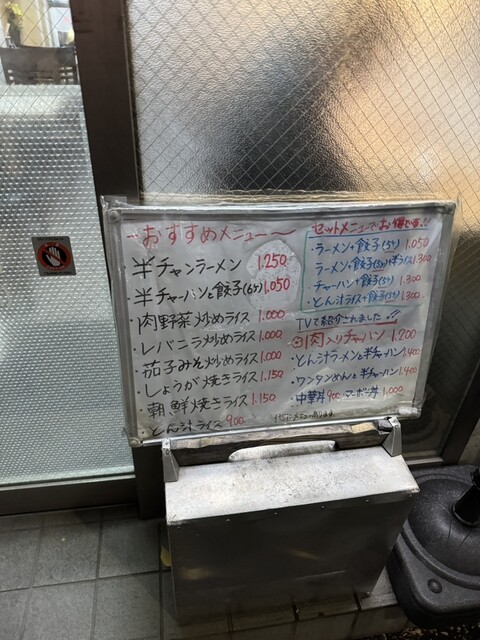 おすすめメニュー
半チャンラーメン 1.250
半チャーハンと餃子(6ケ) 1.050
・肉野菜炒めライス 1.000
・レバニラ炒めライス 1.000
・茄子みそ炒めライス 1.000
・しょうが焼きライス 1.150
・朝鮮焼きライス 1.150
・とん汁ライス 900
セットメニューでお得です!!
・ラーメン+餃子(5ケ) 1.050
ラーメン+餃子(3ケ)+半ライス 1.300
・チャーハン+餃子(5ケ) 1.300
・とん汁ライス+餃子(5ケ) 1.300
TVで紹介されました!?
肉入りチャーハン 1.200
・とん汁ラーメンと半チャーハン 1.400
・ワンタンめんと半チャーハン 1.400
・中華丼 900 マーボー丼 1.000